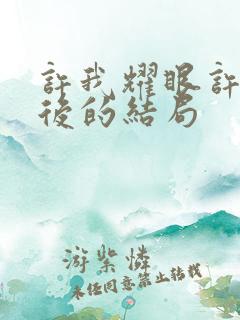 許我耀眼許
後的結局
游紫憐
未任同意禁止转载